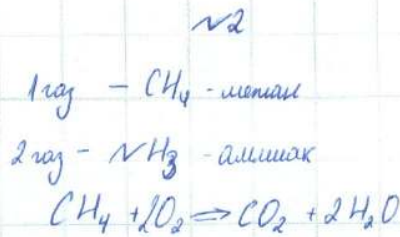 №2
1 газ – CH₄ - метан
2 газ – NH₃ - аммиак
CH₄ + 2O₂ ⇒ CO₂ + 2H₂O